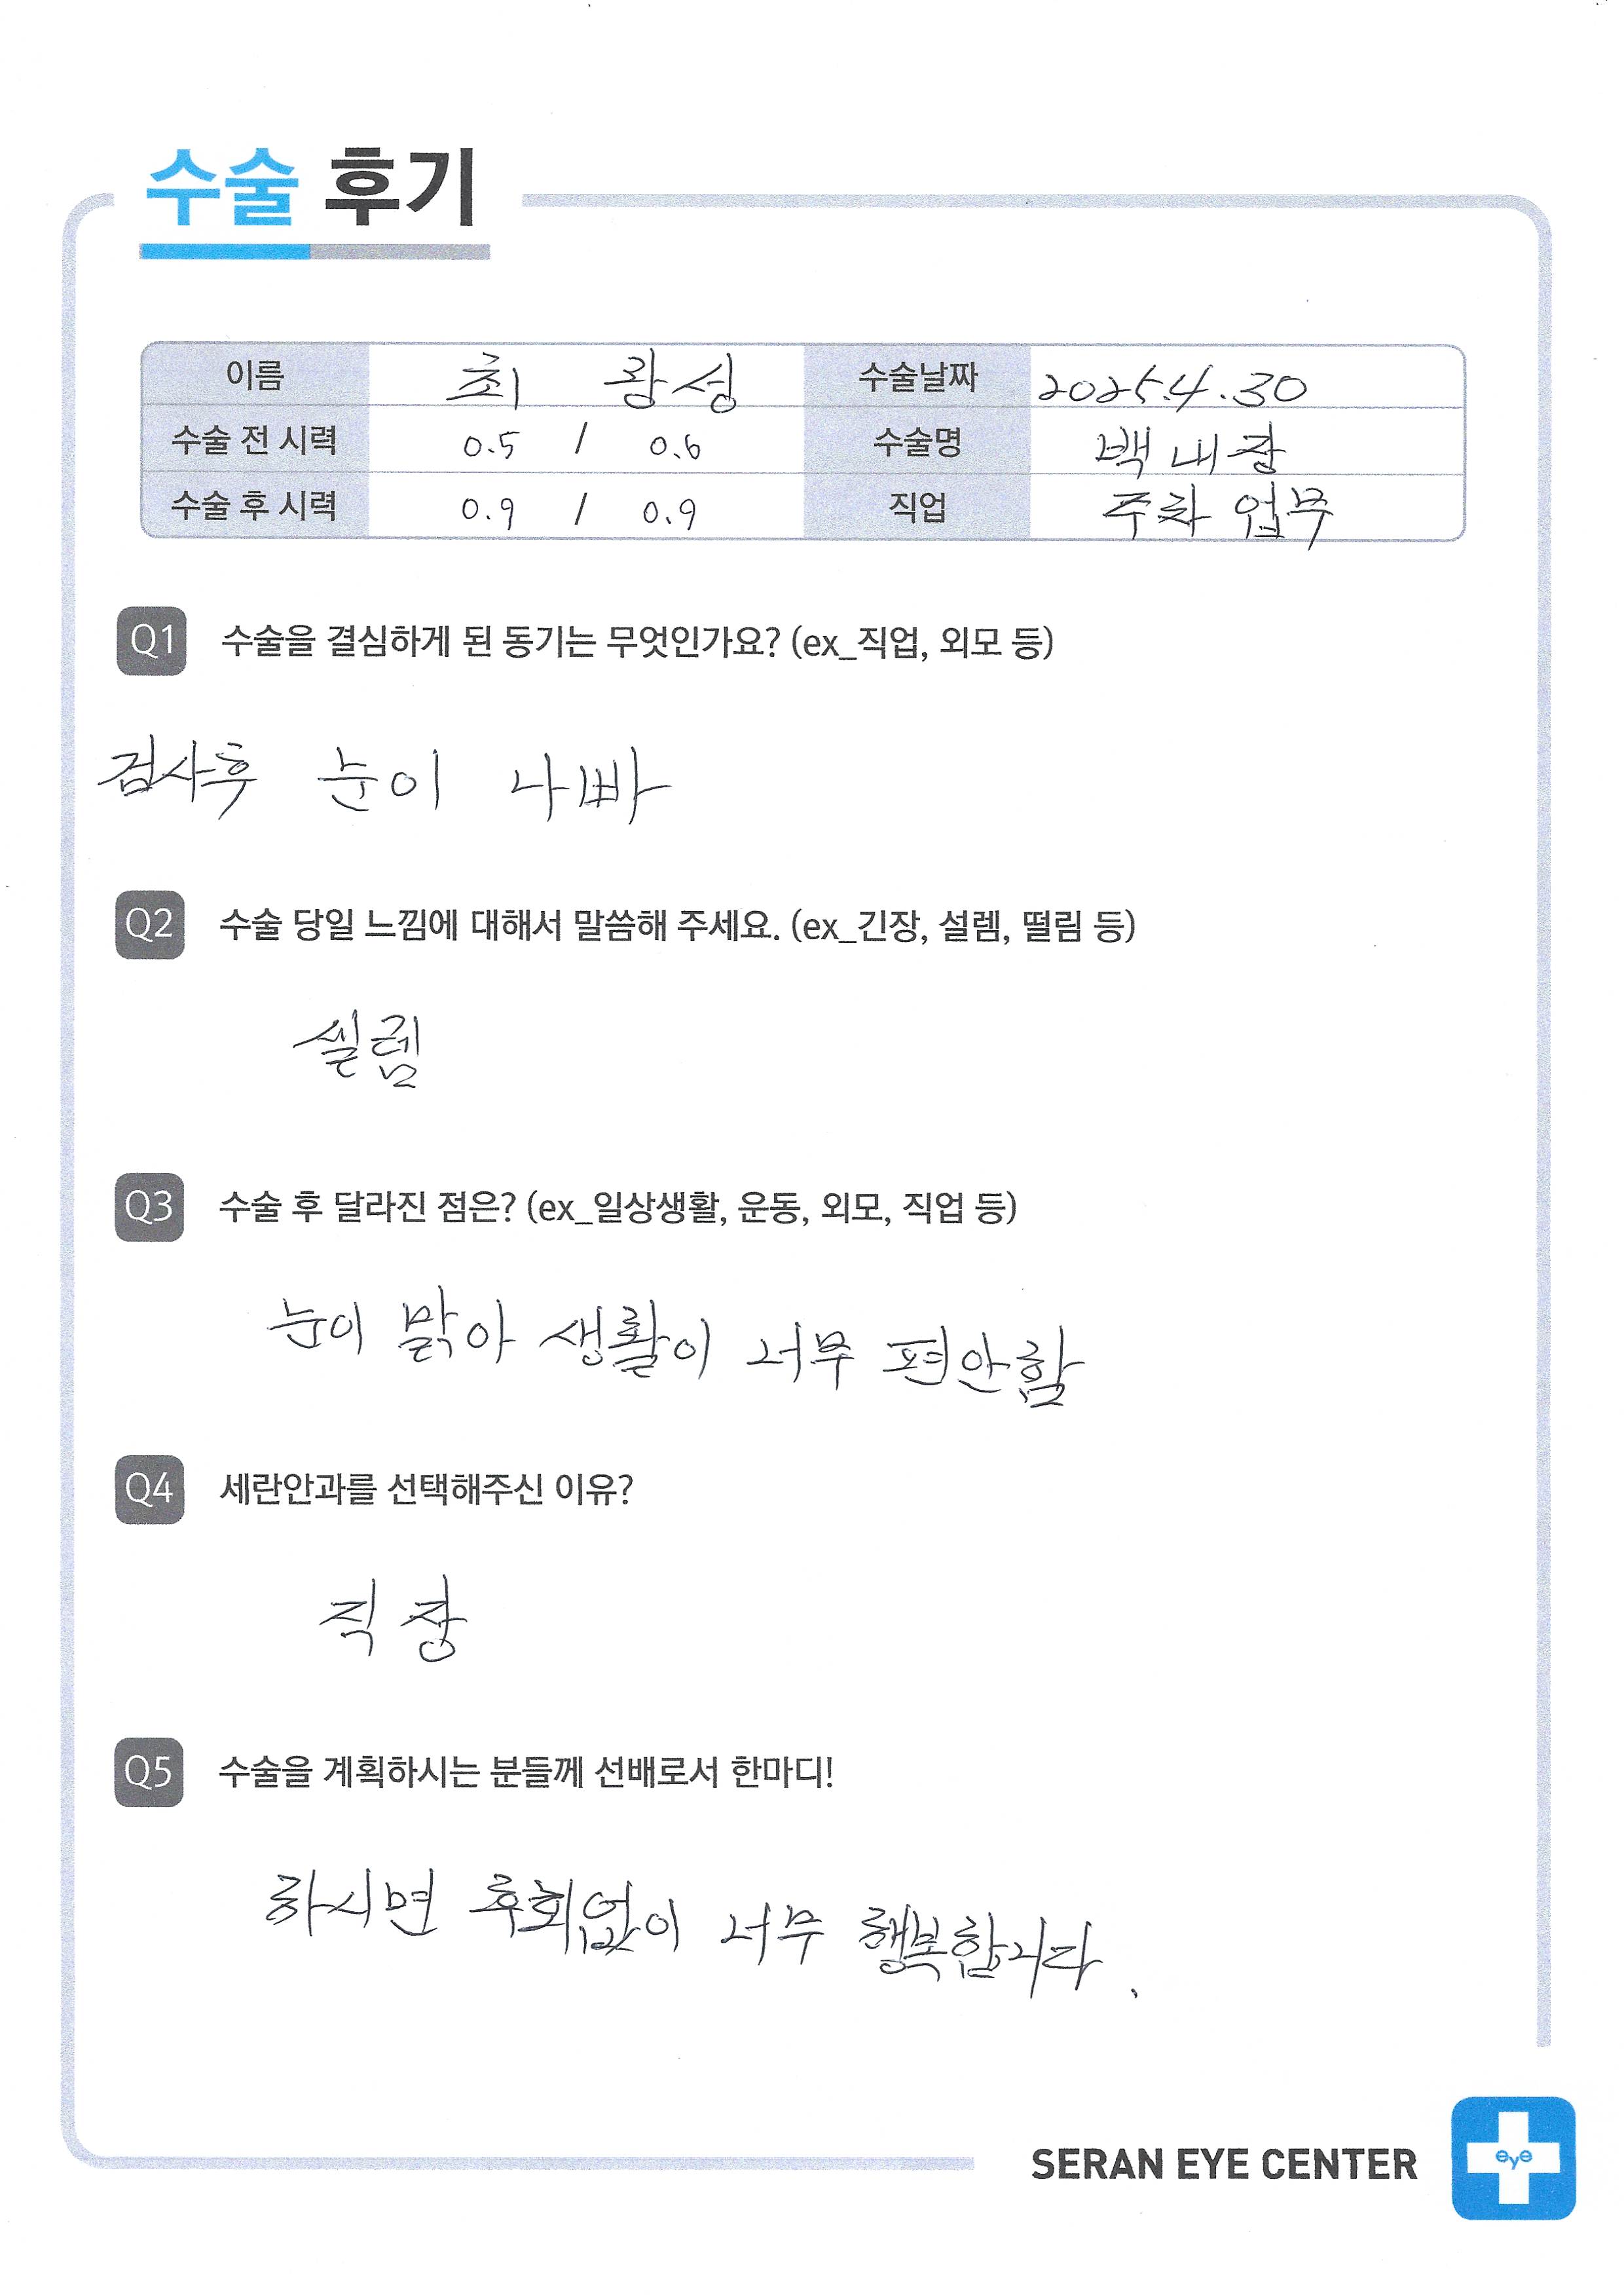 수술 후기
이름 최 광성 수술날짜 2025.4.30
수술 전 시력 0.5 / 0.6 수술명 백내장
수술 후 시력 0.9 / 0.9 직업 주차 업무
Q1 수술을 결심하게 된 동기는 무엇인가요? (ex_직업, 외모 등)
검사후 눈이 나빠
Q2 수술 당일 느낌에 대해서 말씀해 주세요. (ex_긴장, 설렘, 떨림 등)
설렘
Q3 수술 후 달라진 점은? (ex_일상생활, 운동, 외모, 직업 등)
눈이 밝아 생활이 너무 편안함
Q4 세란안과를 선택해주신 이유?
직장
Q5 수술을 계획하시는 분들께 선배로서 한마디!
하시면 후회없이 너무 행복합니다.
SERAN EYE CENTER
eye